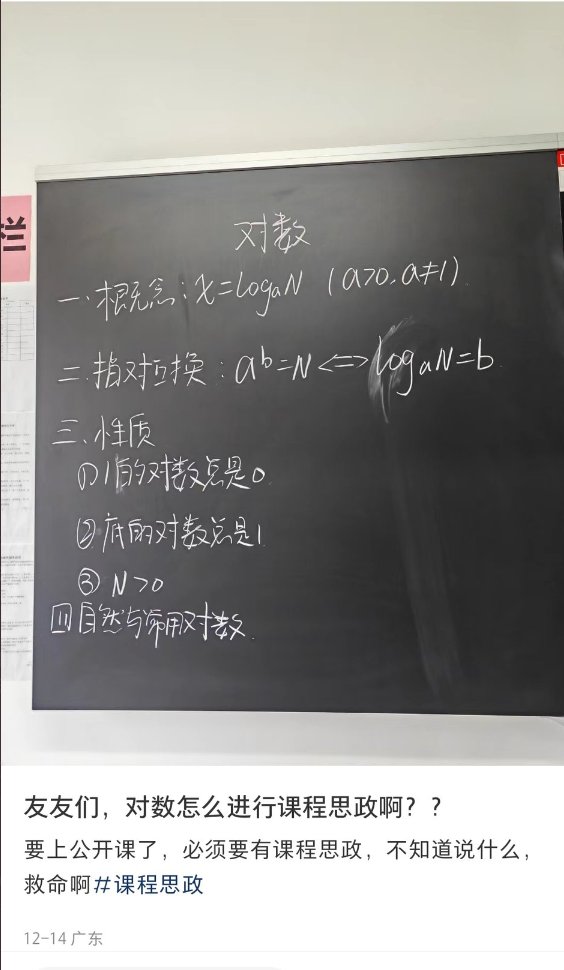 栏
对数
一.概念:x=logaN (a>0,a≠1)
二.指对互换:a^b=N<=>logaN=b
三、性质
①1的对数总是0
②底的对数总是1
③N>0
四自然与常用对数.
友友们，对数怎么进行课程思政啊？？
要上公开课了，必须要有课程思政，不知道说什么，
救命啊#课程思政
12-14 广东